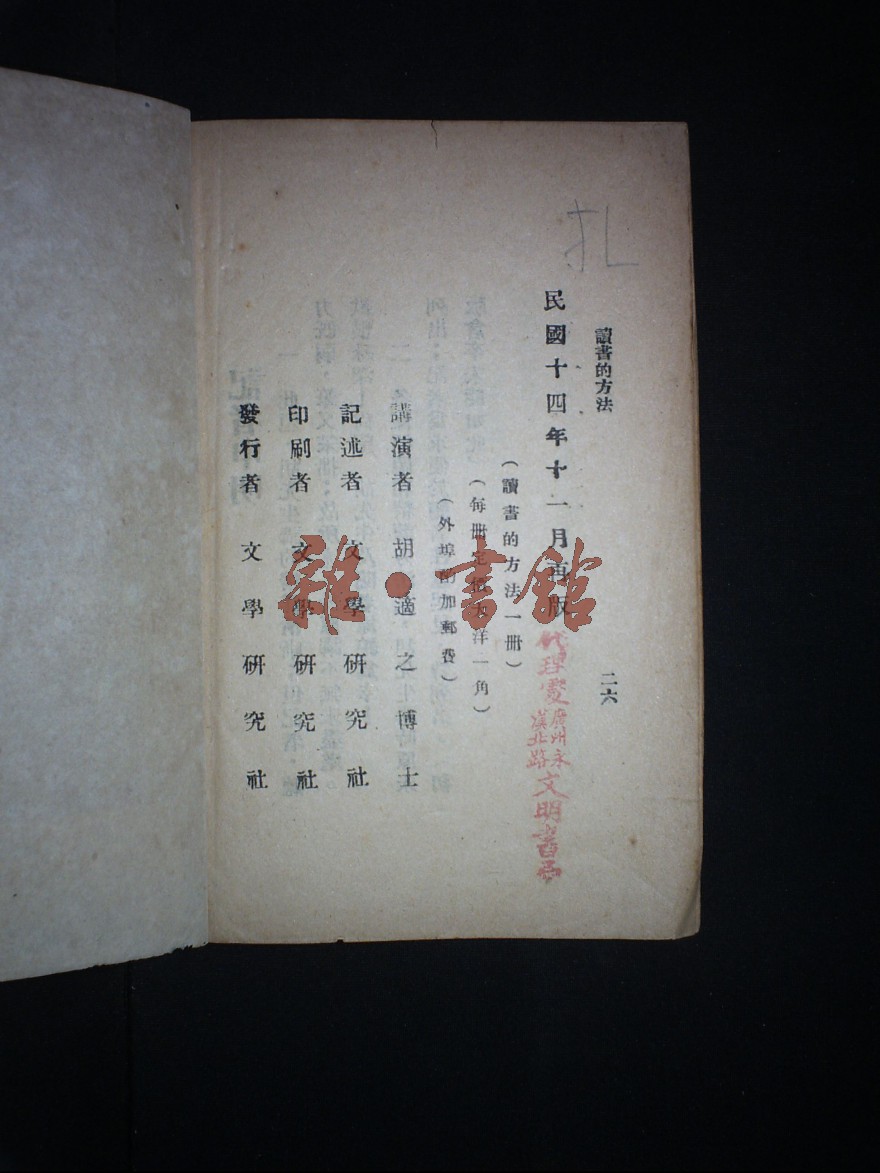 讀書的方法
二六
民國十四年十一月再版
(讀書的方法一冊)
(每冊定價大洋一角)
(外埠酌加郵費)
講演者 胡適之博士
記述者 文學研究社
印刷者 文學研究社
發行者 文學研究社
代理處
廣州永
漢北路
文明書局
雜·書館